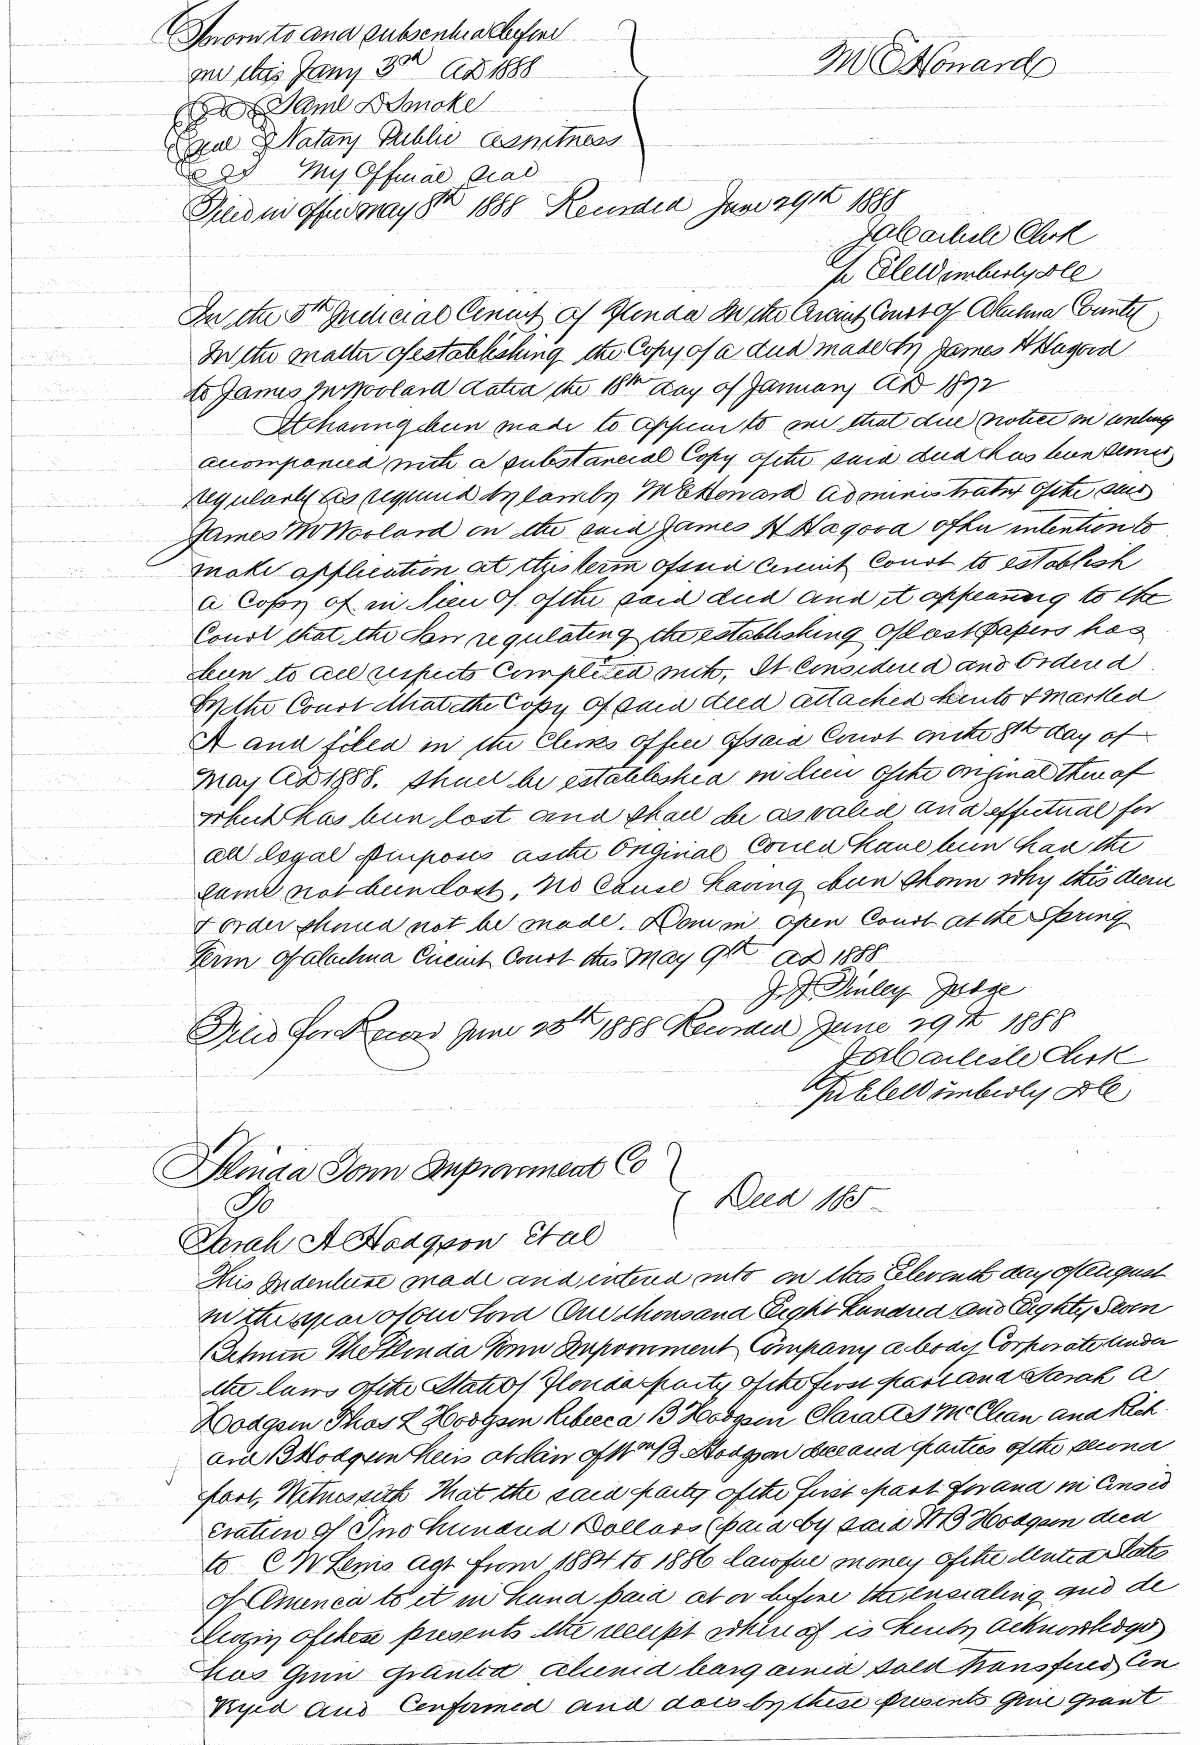 Sworn to and subscribed before
me this Jany 3rd AD 1888
M E Howard
Saml D Smoke
Seal Notary Public as witness
My Official seal
Filed in office May 8th 1888 Recorded June 29th 1888
J A Carlisle Clerk
Pr Wimberly D C
In the 5th Judicial Circuit of Florida In the Circuit Court of Alachua County
In the matter of establishing the Copy of a deed made by James H Hagood
to James M Woolard dated the 18th day of January AD 1872
It having been made to appear to me that due notice in writing
accompanied with a substancial Copy of the said deed has been served
regularly as required by law by M E Howard administratrix of the said
James M Woolard on the said James H Hagood of her intention to
make application at this term of said Circuit Court to establish
a Copy of in lieu of of the said deed and it appearing to the
Court that the Law regulating the establishing of lost papers has
been to all respects complied with, It Considered and Ordered
by the Court that the Copy of said deed attached hereto & marked
A and filed in the Clerks office of said Court on the 8th day of
May AD 1888. shall be established in lieu of the original thereof
which has been lost and shall be as valid and effectual for
all legal purposes as the Original Could have been had the
same not been lost. No Cause having been shown why this decree
& order should not be made. Done in open Court at the Spring
Term of Alachua Circuit Court this May 9th AD 1888
J. J. Finley Judge
Filed for Record June 25th 1888 Recorded June 29th 1888
J A Carlisle Clerk
Pr Wimberly D C
Florida Town Improvement Co
To
Deed 185
Sarah A Hodgson Et al
This Indenture made and entered into on this Eleventh day of August
in the year of our Lord One thousand Eight hundred and Eighty Seven
Between The Florida Town Improvement Company a body Corporate under
the laws of the State of Florida party of the first part and Sarah A
Hodgson Thos L Hodgson Rebecca B Hodgson Clara S McClean and Rich
ard B Hodgson heirs at law of Wm B Hodgson deceased parties of the second
part, Witnesseth That the said party of the first part for and in Consid
eration of Two hundred Dollars (paid by said W B Hodgson decd
to C W Lewis agt from 1884 to 1886 lawful money of the United States
of America to it in hand paid at or before the ensealing and de
livery of these presents the receipt whereof is hereby acknowledged
has given granted aliened bargained sold transfered Con
veyed and Confirmed and does by these presents give grant